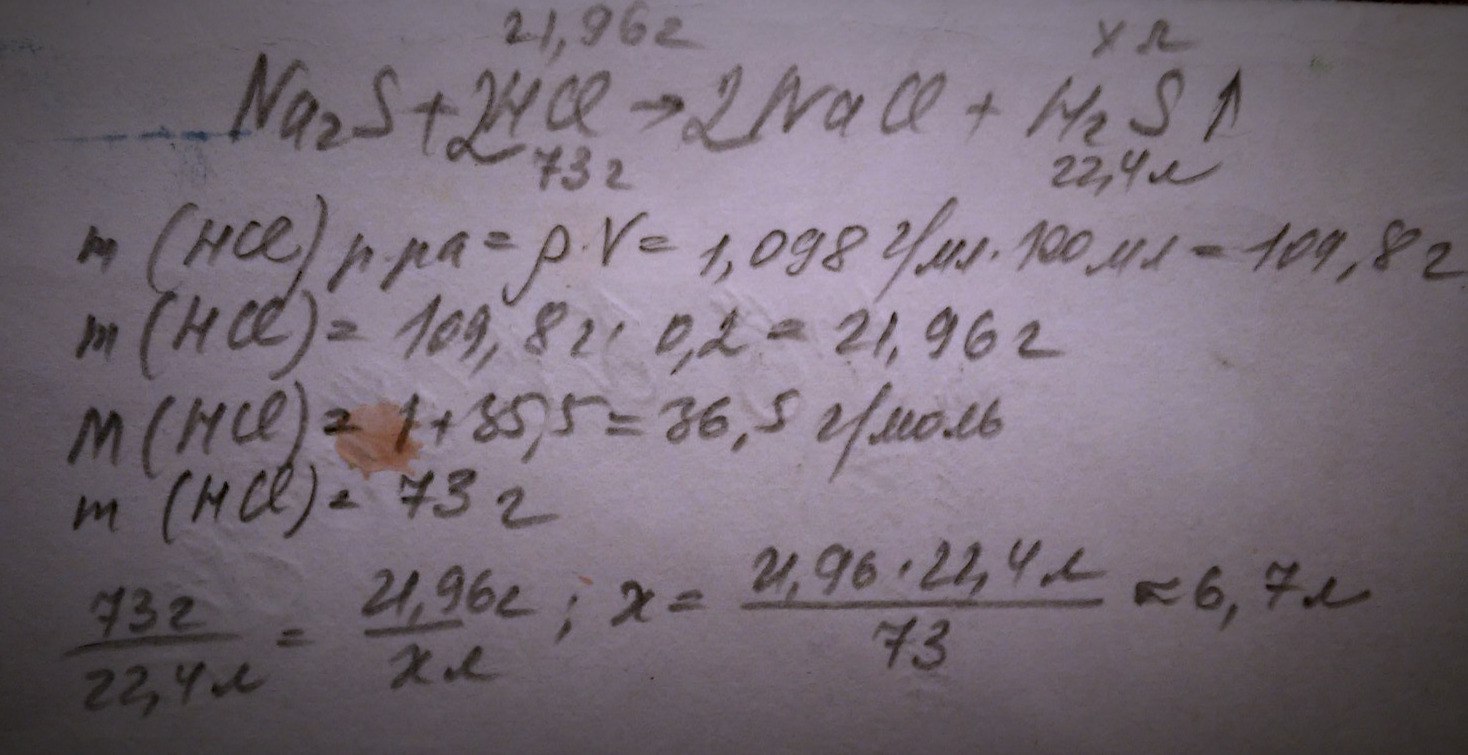 21,96г х л
Na₂S + 2HCl → 2NaCl + H₂S ↑
73г 22,4л
m (HCl) р-ра = ρ·V = 1,098 г/мл · 100 мл = 109,8 г
m (HCl) = 109,8 г · 0,2 = 21,96 г
M (HCl) = 1 + 35,5 = 36,5 г/моль
m (HCl) = 73 г
73г / 22,4л = 21,96г / х л ; x = 21,96 · 22,4 л / 73 ≈ 6,7л